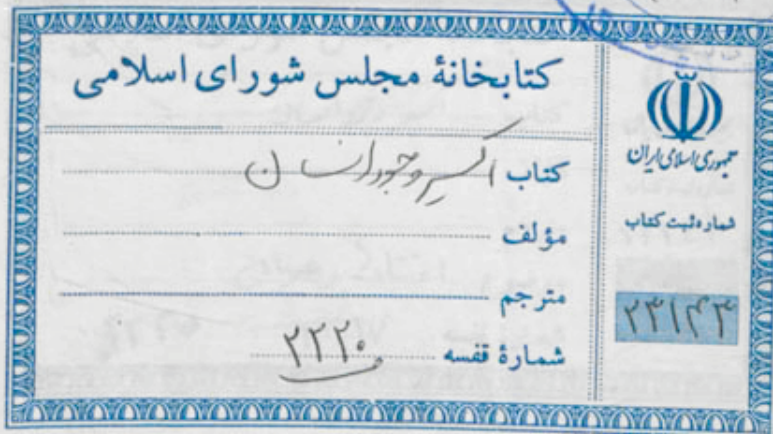 کتابخانهٔ مجلس شورای اسلامی
کتاب اکسیر وجود انسان
مؤلف
مترجم
شمارهٔ قفسه ۲۲۲۰
جمهوری اسلامی ایران
شماره ثبت کتاب
۲۳۱۴۳